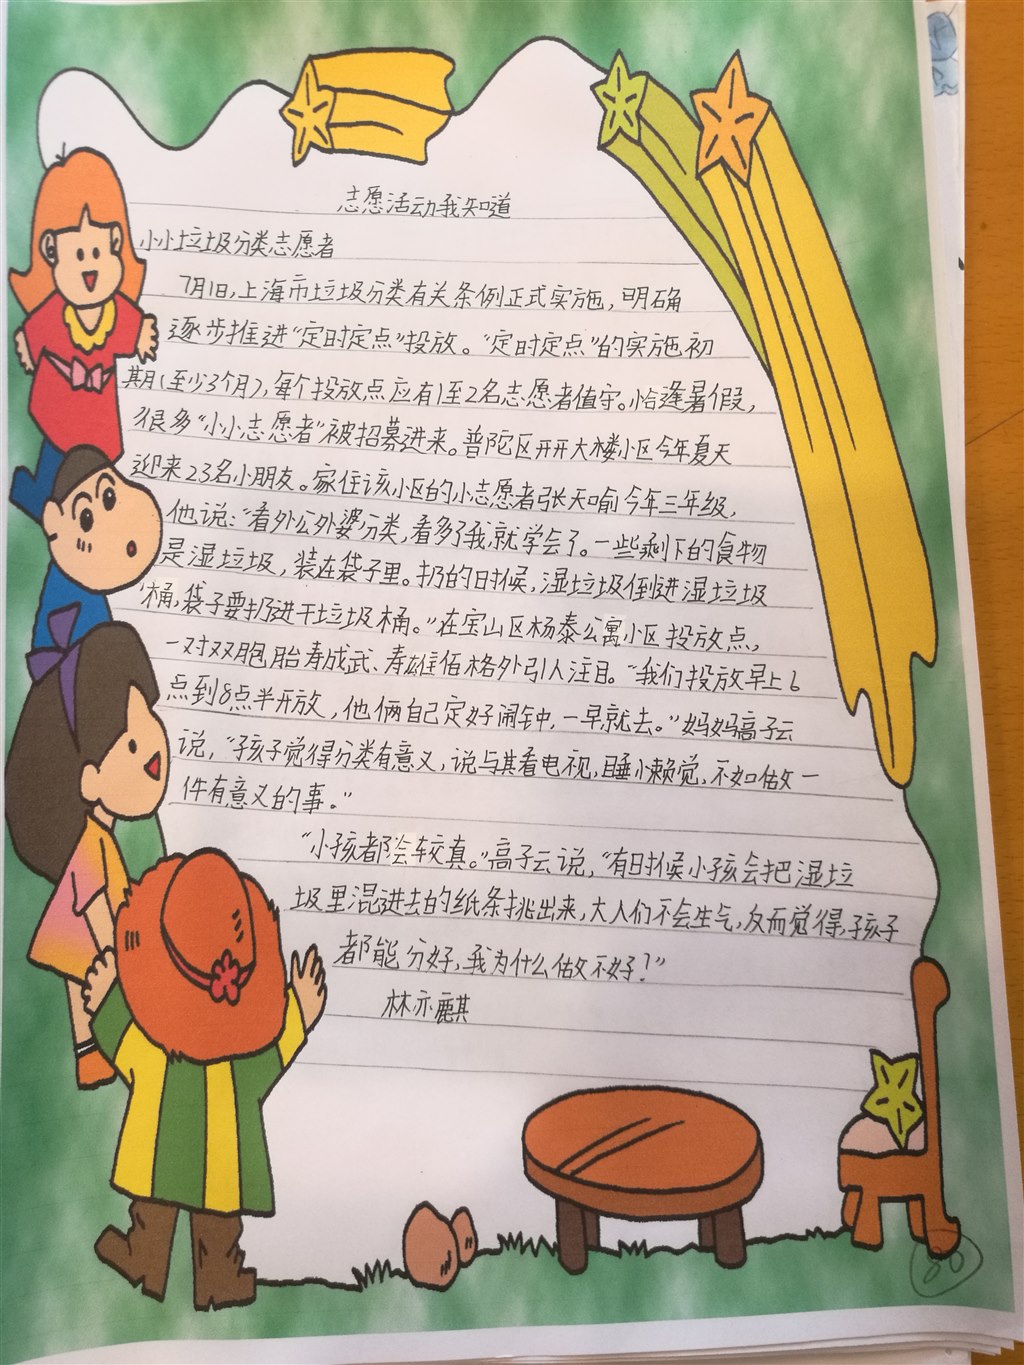 志愿活动我知道
小小垃圾分类志愿者
7月1日,上海市垃圾分类有关条例正式实施,明确
逐步推进“定时定点”投放。“定时定点”的实施初
期(至少3个月),每个投放点应有1至2名志愿者值守。恰逢暑假,
很多“小小志愿者”被招募进来。普陀区开开大楼小区今年夏天
迎来23名小朋友。家住该小区的小志愿者张天喻今年三年级,
他说:“看外公外婆分类,看多了我就学会了。一些剩下的食物
是湿垃圾,装在袋子里。扔的时候,湿垃圾倒进湿垃圾
桶,袋子要扔进干垃圾桶。”在宝山区杨泰公寓小区投放点,
一对双胞胎寿成武、寿雄佰格外引人注目。“我们投放早上6
点到8点半开放,他俩自己定好闹钟,一早就去。”妈妈高子云
说,“孩子觉得分类有意义,说与其看电视,睡小懒觉,不如做一
件有意义的事。”
“小孩都会较真。”高子云说,“有时候小孩会把湿垃
圾里混进去的纸条挑出来,大人们不会生气,反而觉得,孩子
都能分好,我为什么做不好!”
林亦麒
80